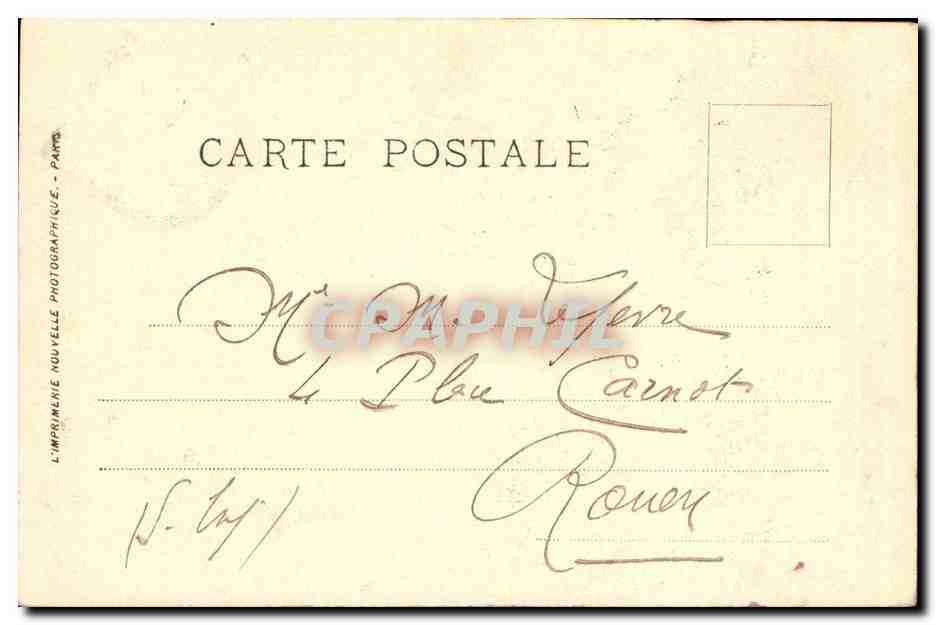 CARTE POSTALE
L'IMPRIMERIE NOUVELLE PHOTOGRAPHIQUE. - PARIS
CPAPHIL
Mr M. Lefevre
4 Place Carnot
Rouen
(S. Inf)